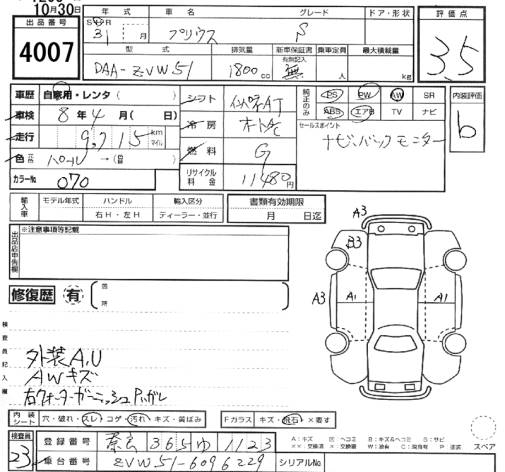 10月30日
出品番号 年式 車名 グレード ドア・形状 評価点
4007
31 月 プリウス S 3.5
型式 排気量 新車保証書 乗車定員 最大積載量
有無記入
DAA-ZVW51 1800cc 無 人 kg
車歴 自家用・レンタ( ) シフト インパネAT 純正のみ PS PW AW SR 内装評価
ABS エアB TV ナビ
b
車検 8年 4月 ( 日) 冷房 オートAC セールスポイント
ナビ、バックモニター
走行 97,715 km マイル 燃料 G
色 パール →(
カラーNo 070 リサイクル料金 11480円
輸入車 モデル年式 ハンドル 輸入区分 書類有効期限
右H・左H ディーラー・並行 月 日迄
出品店申告欄 ※注意事項等記載
A3
B3
A3 A1 A1
修復歴 有 箇所
検査員記入欄
外装A,U
AWキズ
右クォーターガーニッシュPハガレ
内装シート 穴・破れ・スレ・コゲ・汚れ・キズ・黄ばみ Fガラス キズ・飛石・×要す
スペア
検査員 登録番号 奈良 365 ゆ 1123
23 車台番号 ZVW51-6096229 シリアルNo